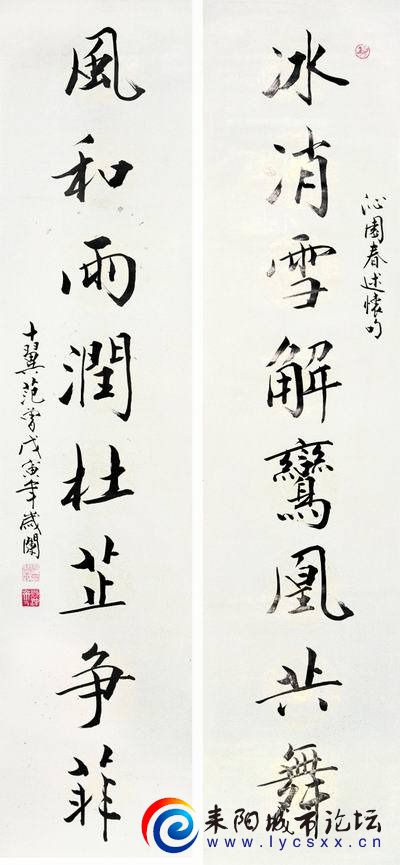 沁園春述懷句
冰消雪解鸞凰共舞
風和雨潤杜芷争菲
十翼范曾戊寅年歲闌
耒阳城市论坛
www.lycsxx.cn